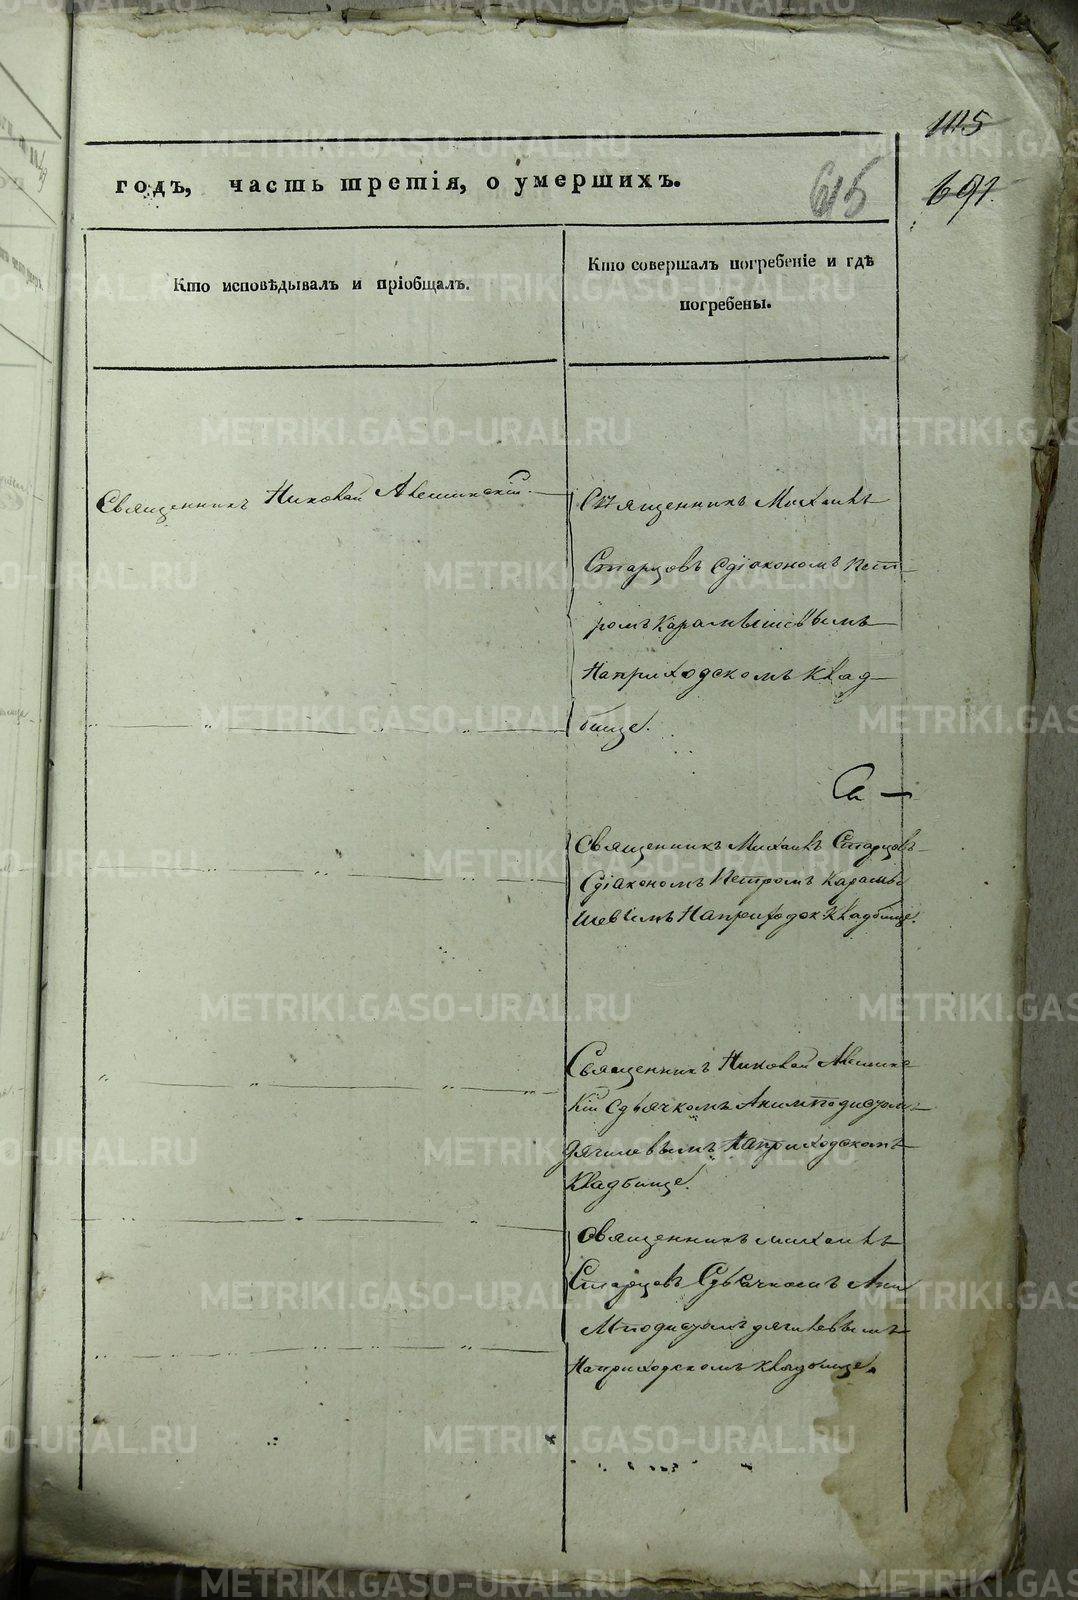 1115
годъ, часть третія, о умершихъ.
615
691.
Кто исповѣдывалъ и пріобщалъ.
Кто совершалъ погребеніе и гдѣ
погребены.
Священникъ Николай
Священникъ Михаилъ
Старцовъ Сдіакономъ Пет
ромъ Карамышевымъ
На приходскомъ клад
бище.
Священникъ Михаилъ Старцовъ
Сдіакономъ Петромъ Карамы
шевымъ На приходск: кладбище.
Священникъ Николай
кій Сдьячкомъ Анимподистомъ
дягилевымъ На приходскомъ
кладбище.
Священникъ михаилъ
Старцовъ Сдьячкомъ Ани
мподистомъ дягилевымъ
На приходскомъ кладбище.
METRIKI.GASO-URAL.RU